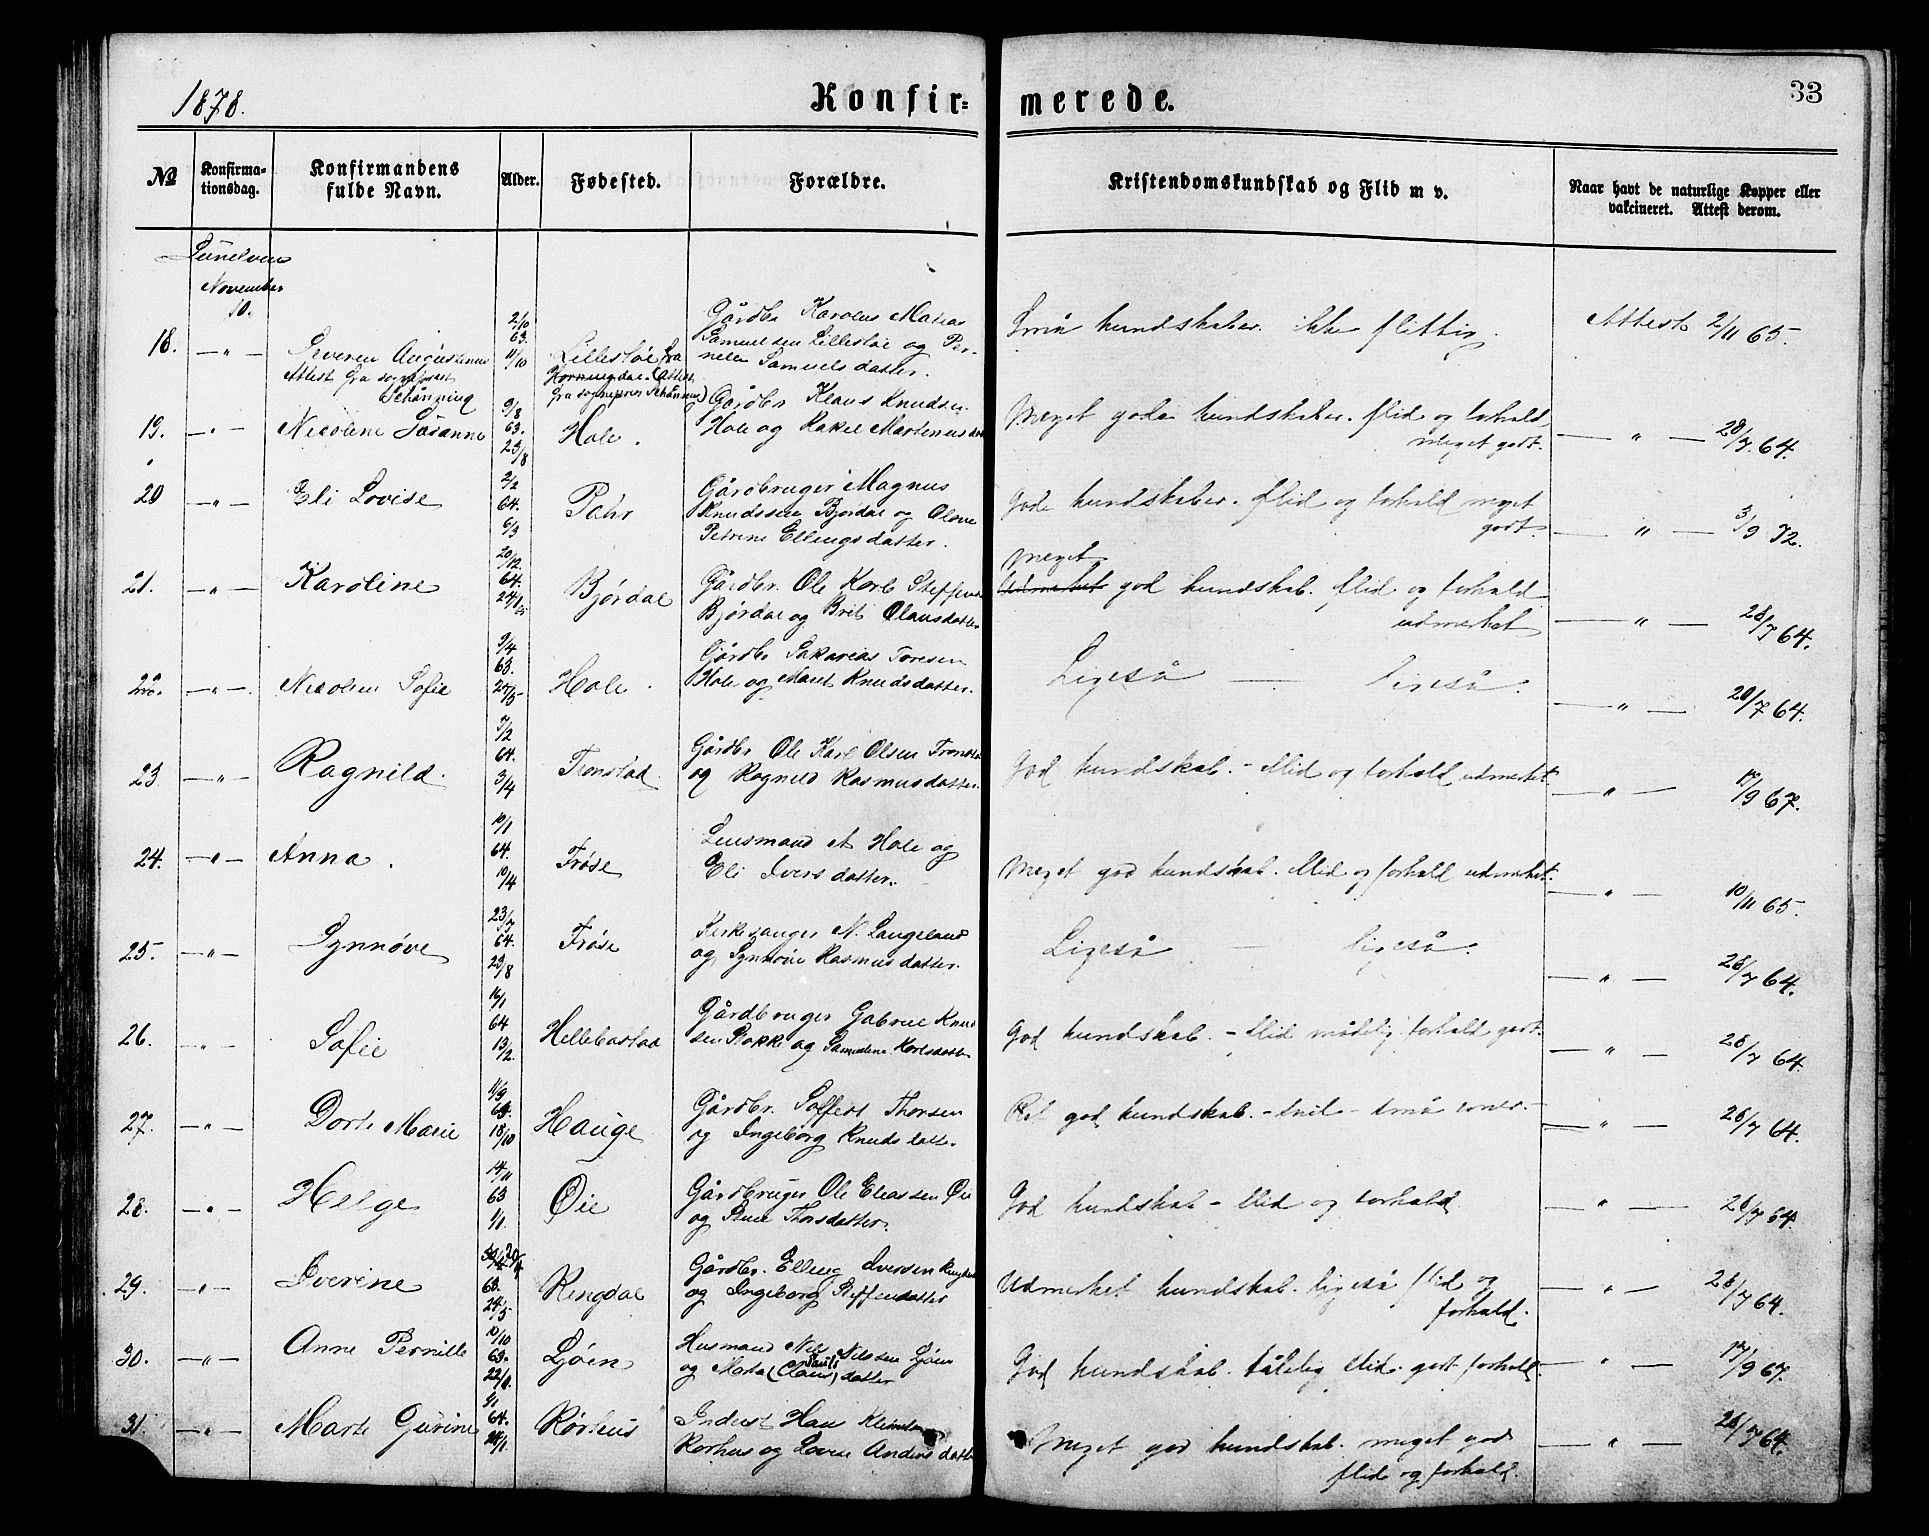 1878.
Konfir=
merede.
33
№
Konfirma-
tionsdag.
Konfirmandens
fulde Navn.
Alder.
Fødested.
Forældre.
Kristendomskundskab og Flid m v.
Naar havt de naturlige Kopper eller
vakcineret. Attest derom.
Sunelven
November
10.
18. — " —
Attest fra
2/10
63.
11/10
Gårdbr Karolus
Samuelsen Lillestøe og Per-
nelle Samuelsdatter.
Små kundskaber. ikke flittig.
Attest 2/11 65.
19. — " — Nicoline Susanne
9/8
63.
23/8
Hole.
Gårdbr Klaus Knudsen
Hole og Rakel
Meget gode kundskaber. flid og forhold
meget godt.
— " — 28/7 64.
20 — " — Eli Lovise
2/2
64.
6/3
Gårdbruger Magnus
Knudssen Bjørdal og
Petrine Ellingsdatter.
Gode kundskaber. flid og forhold meget
godt.
— " — 3/9 72.
21. — " — Karoline
20/12
64.
Bjørdal
Gårdbr. Ole Karl
Bjørdal og Brit Olausdatter
meget
Udmerket god kundskab. flid og forhold
udmerket
— " — 28/7 64.
22. — " — Nicoline Sofie
9/4
63.
25/5
Hole.
Gårdbr Sakarias Toresen
Hole og Marit Knudsdatter.
Ligeså — ligeså.
— " — 28/7 64.
23 — " — Ragnild.
7/2
64.
3/4
Tronstad.
Gårdbr Ole Karl Olsen
og Ragnild Rasmusdatter.
God kundskab. – flid og forhold udmerket.
— " — 17/9 67.
24. — " — Anna.
10/1
64.
10/4
Frøse
Lensmand A Hole og
Eli Iversdatter.
Meget god kundskab. flid og forhold udmerket.
— " — 10/11 65.
25. — " — Synnøve
23/7
64.
23/8
Frøse
Kirkesanger N. Langeland
og Synnøve Rasmusdatter.
Ligeså — ligeså.
— " — 28/7 64.
26. — " — Sofie
16/1
64
13/2
Hellebostad
Gårdbruger Gabriel Knud
sen Stokke og Karlsdatter
God kundskab. – flid mådelig forhold godt.
— " — 28/7 64.
27. — " — Dorte Marie
18/10
Hauge
Gårdbr. Thorsen
og Ingeborg Knudsdatter.
Ret god kundskab.
— " — 28/7 64.
28. — " — Helge
14/11
63
1/1.
Øie
Gårdbruger Ole Eliassen Øie
og Thorsdatter.
God kundskab – flid og forhold
— " — 28/7 64.
29. — " — Iverine
63.
24/5
Ringdal
Gårdbr. Elling Iversen
og Ingeborg Steffensdatter
Udmerket kundskab. ligeså flid og
forhold.
— " — 28/7 64.
30. — " — Anne Pernille
10/10
63.
Ljøen
Husmand Nils Nilsen Ljøen
og (Claus) datter
God kundskab. tålelig flid. godt forhold.
— " — 17/9 67.
31. — " — Marte Gurine
64.
Rørhus
Inderst Hans
Rørhus og Lovise Andersdatter
Meget god kundskab. meget god
flid og forhold.
— " — 28/7 64.